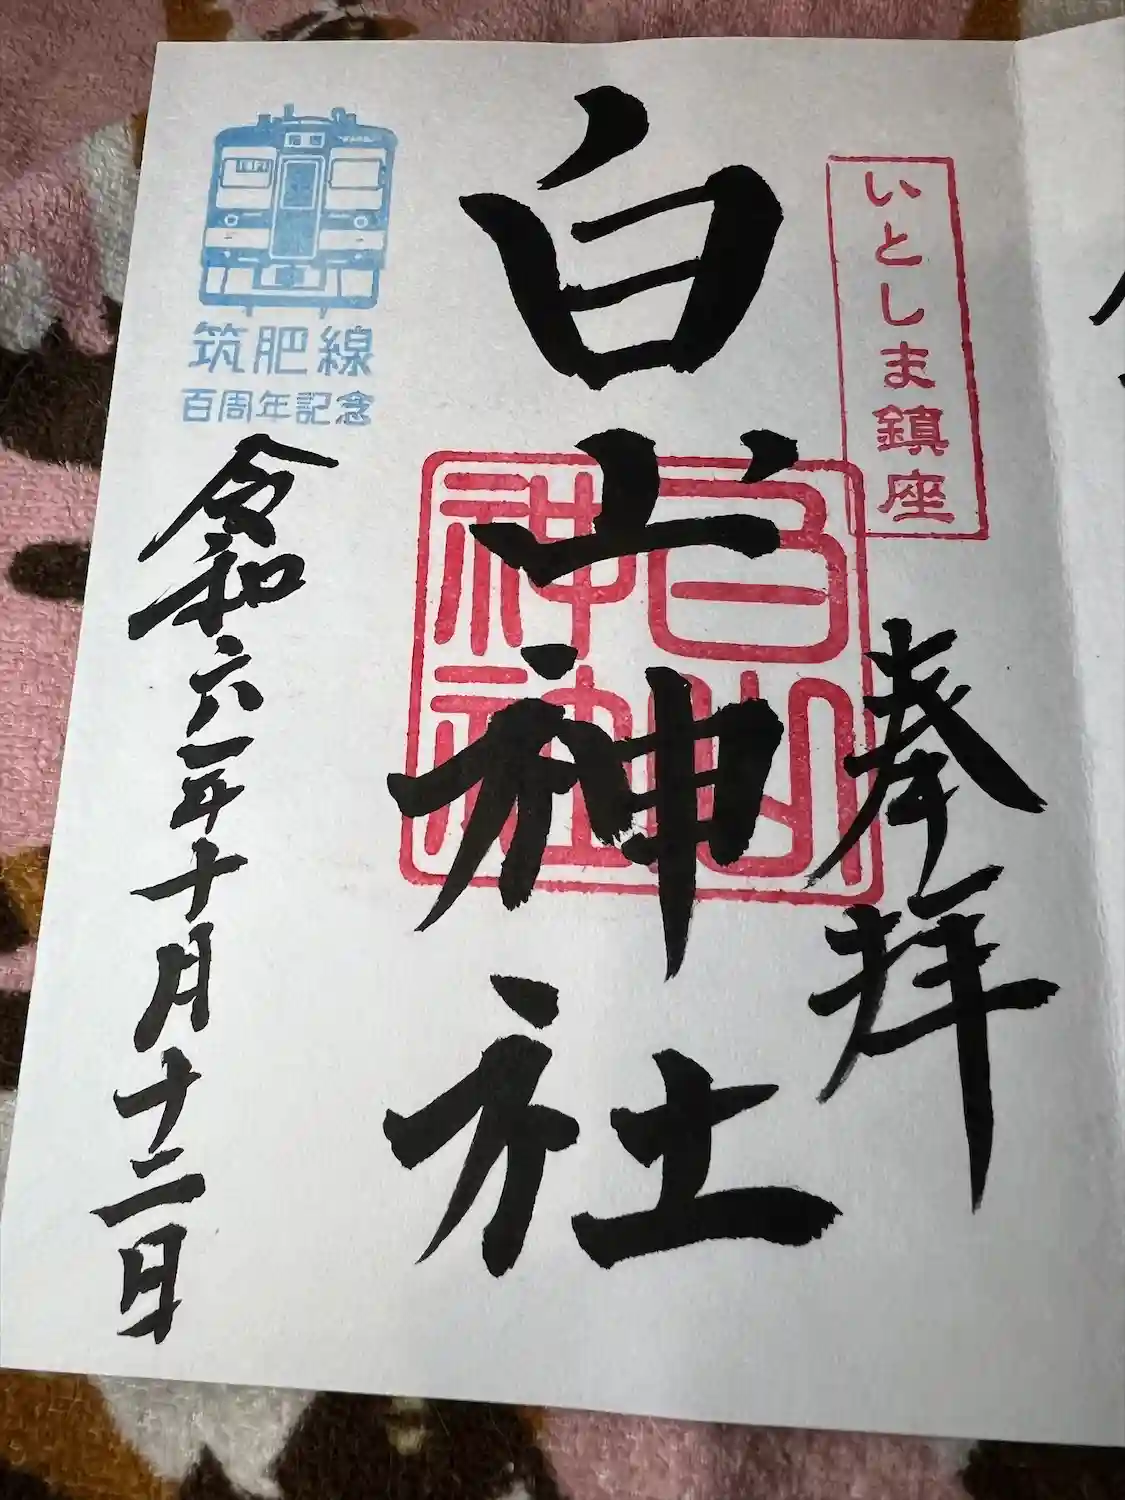 いとしま鎮座
奉拝
白山神社
白山
神社
筑肥線
百周年記念
令和六年十月十二日